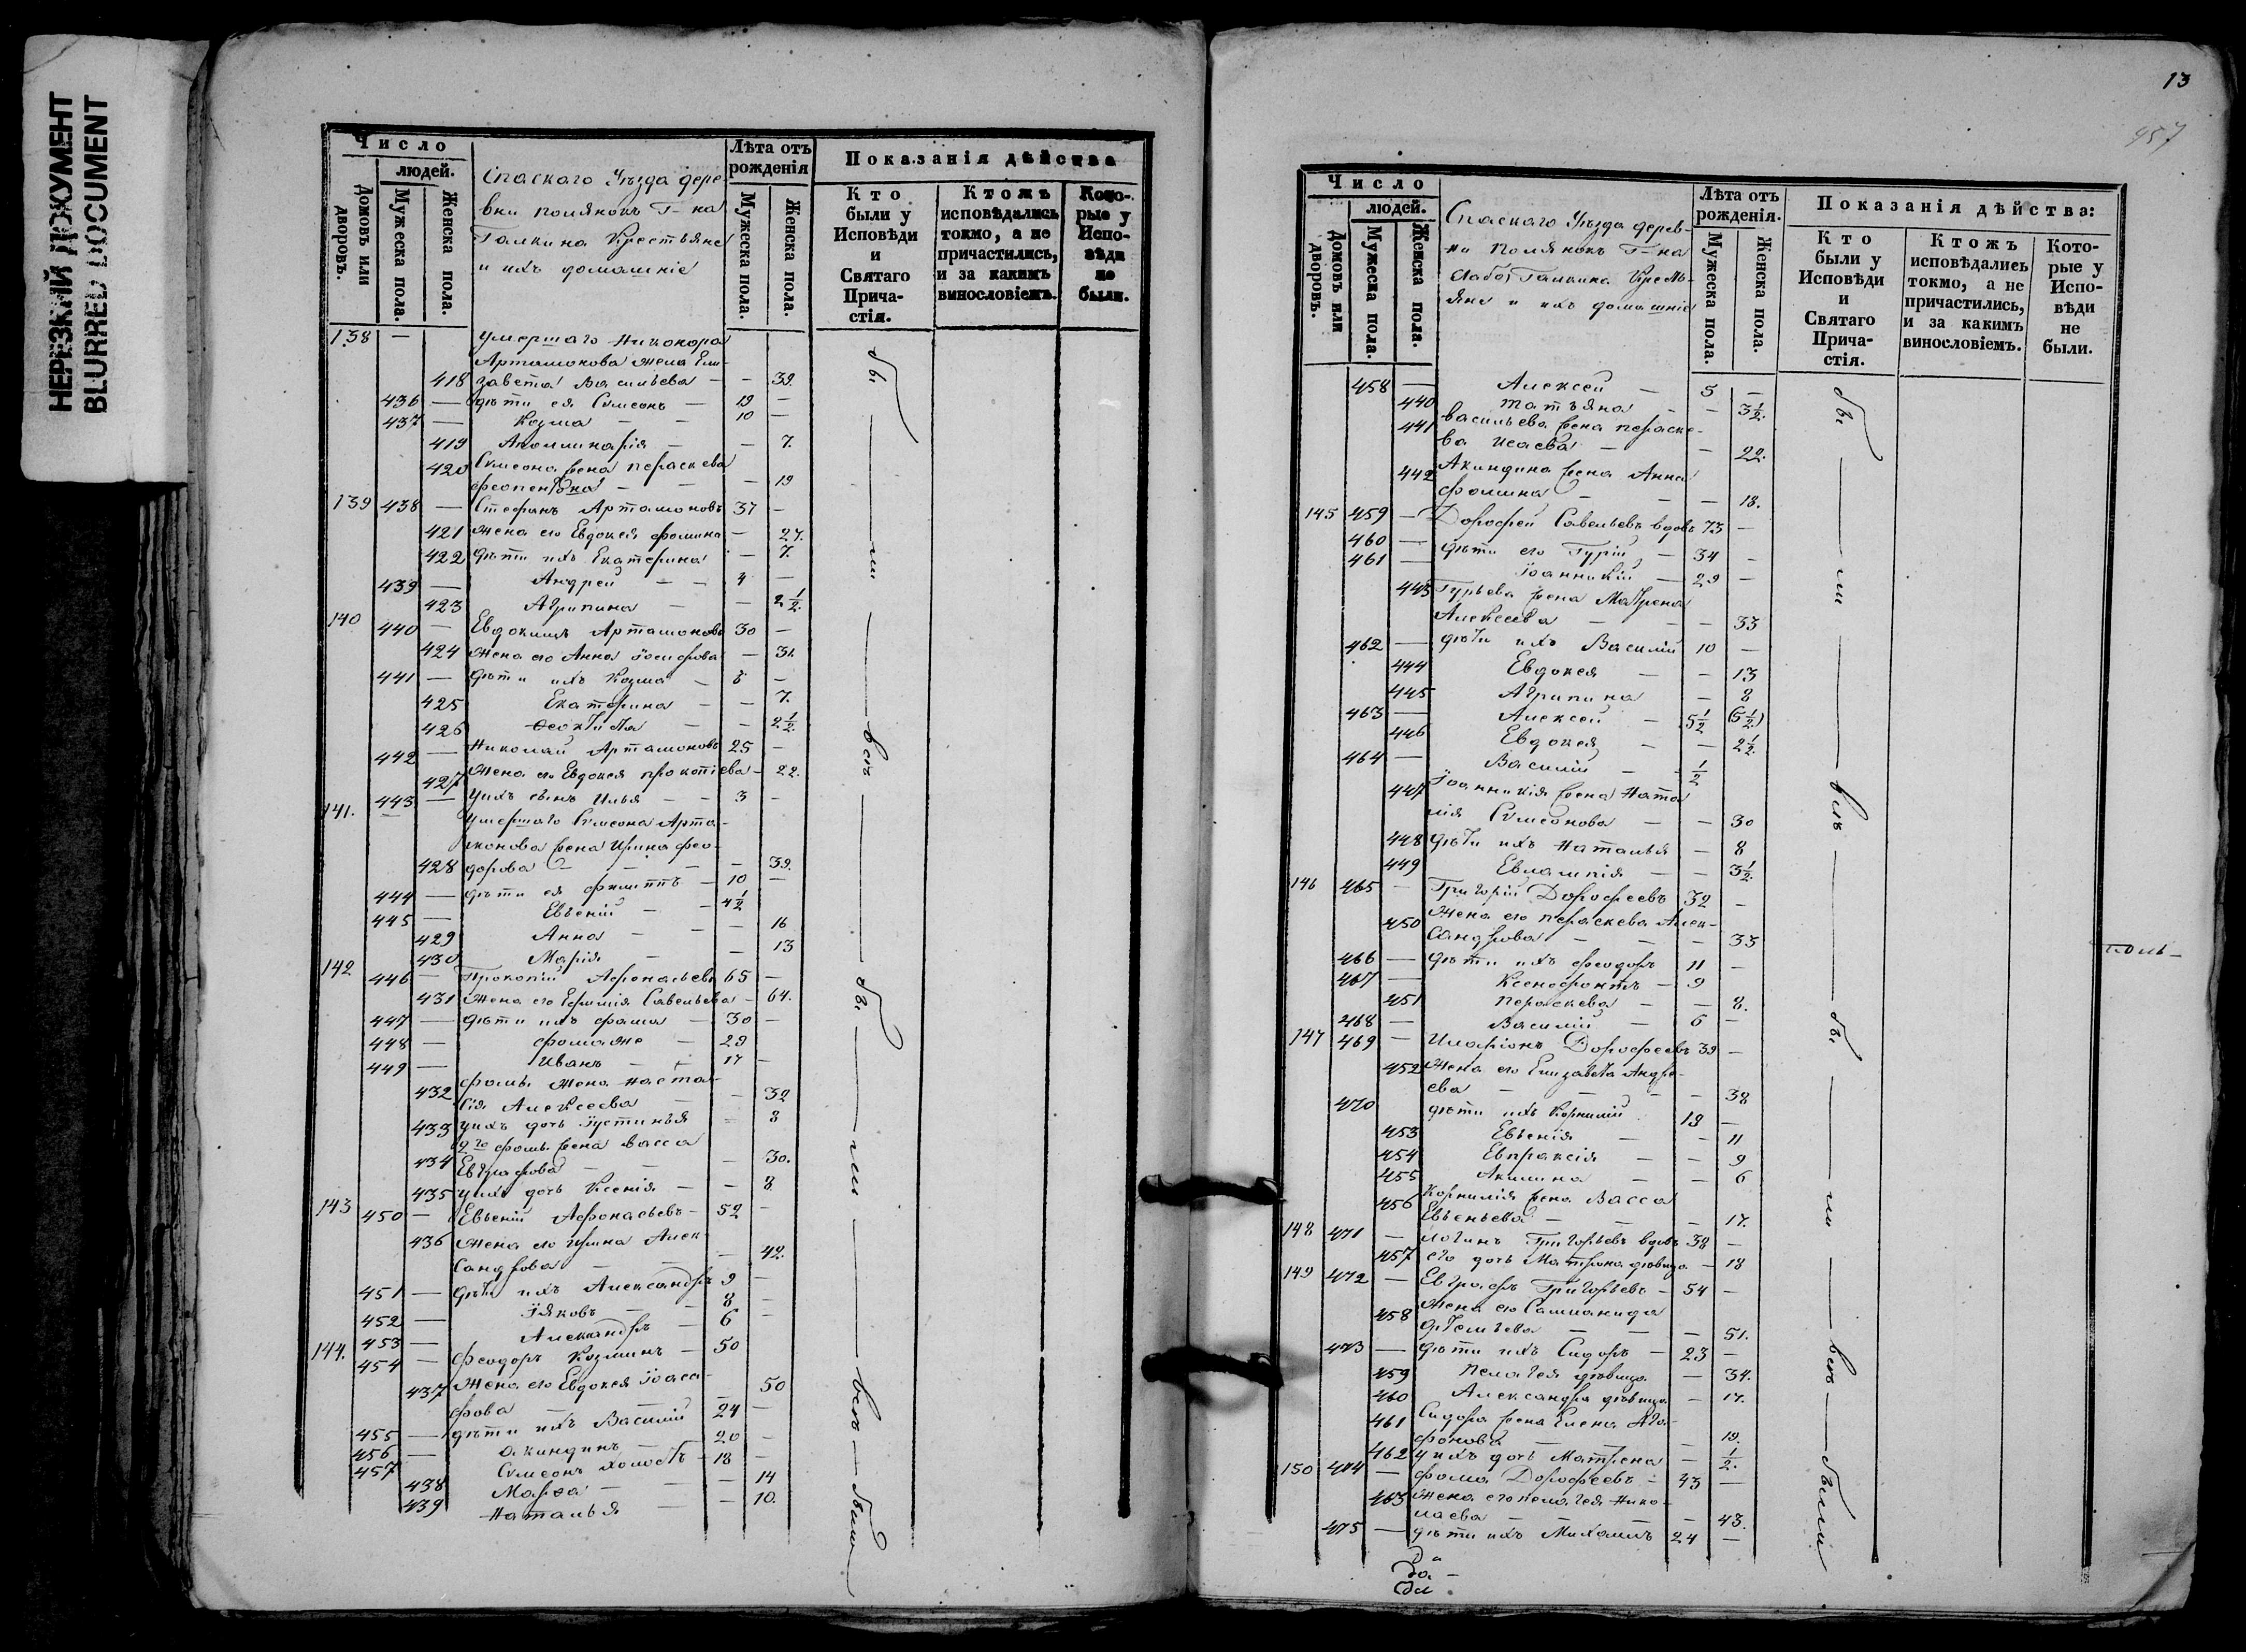 НЕРЕЗКИЙ ДОКУМЕНТ
BLURRED DOCUMENT
Число
людей.
Домовъ или дворовъ.
Мужеска пола.
Женска пола.
Спаскаго Уѣзда дере-
вни Полянокъ Г-на
Галкина Крестьяне
и ихъ домашніе
Лѣта отъ рожденія
Мужеска пола.
Женска пола.
Показанія дѣйства
Кто были у Исповѣди и Святаго Прича-стія.
Ктожъ исповѣдались токмо, а не причастились, и за какимъ винословіемъ.
Кото-рые у Испо-вѣди не были.
138 — Умершаго Никонора
Артамонова жена Ели-
418 завета Васильева — — 39.
436 — дѣти ея Симеонъ — 19 —
437 — Козма — — 10 —
419 Аполлинарія — — 7.
420 Симеона жена Параскева
— — 19
139 438 — Стефанъ Артамоновъ 37 —
421 жена его Евдокія Фомина — 27.
422 дѣти ихъ Екатерина — 7.
439 — Андрей — — 4 —
423 Агрипина — — 2 1/2.
140 440 — Евдокимъ Артамоновъ 30 —
424 жена его Анна Іосифова — 31.
441 — дѣти ихъ Козма — 8 —
425 Екатерина — — 7.
426 Феоктиста — — 2 1/2.
442 — Николай Артамоновъ 25 —
427 жена его Евдокія Прокопіева — 22.
141. 443 — у нихъ сынъ Илья — — 3 —
Умершаго Симеона Арта-
монова жена Ирина Фео-
428 дорова — — — — 39.
444 — дѣти ея Филиппъ — 10 —
445 — Евгеній — — 4 1/2
429 Анна — — 16
430 Марія — — 13
142 446 — Прокопій Афонасьевъ 65 —
431 жена его Ефимія Савельева — 64.
447 — дѣти ихъ Фома — 30 —
448 — Фома же — 29
449 — Иванъ — — 17 —
432 Фомы жена Настасія
Алексеева — — 32
433 у нихъ дочь Іустинья — 8
2го Фомы жена Васса
434 Евграфова — — — 30.
435 у нихъ дочь Ксенія — — 8
143 450 — Евгеній Афонасьевъ — 52 —
436 жена его Ирина Алек-
сандрова — — — 42.
451 — дѣти ихъ Александръ 9 —
452 — Іяковъ — — 8 —
453 — Александръ — 6 —
144. 454 — Феодоръ Козминъ — 50
437 жена его Евдокія Іоаса-
фова — — — 50
455 — дѣти ихъ Василій 24 —
456 — Акиндинъ — 20 —
457 — Симеонъ холостъ — 18 —
438 Марѳа — — — 14
439 Наталья — — 10.
бы — ли — всѣ — бы — ли — всѣ — были
13
457
Число
людей.
Домовъ или дворовъ.
Мужеска пола.
Женска пола.
Спаскаго Уѣзда дерев-
ни Полянокъ Г-на
Галкина Кресть-
яне и ихъ домашніе
Лѣта отъ рожденія.
Мужеска пола.
Женска пола.
Показанія дѣйства:
Кто были у Исповѣди и Святаго Прича-стія.
Ктожъ исповѣдались токмо, а не причастились, и за какимъ винословіемъ.
Кото-рые у Испо-вѣди не были.
458 — Алексей — 5 —
440 Татьяна — — 3 1/2.
441 Васильева жена Параске-
ва Исаева — — 22.
442 Акиндина жена Анна
Фомина — — — 18.
145 459 — Дорофей Савельевъ вдовъ 73 —
460 — дѣти его Гурій — 34 —
461 — Іоанникій — 29 —
443 Гурьева жена Матрена
Алексеева — — — 33
462 — дѣти ихъ Василій 10 —
444 Евдокея — — 13
445 Агрипина — 8
463 — Алексей — 5 1/2 (5 1/2)
446 Евдокея — — 2 1/2.
464 — Василій — — 1/2
447 Іоанникія жена Ната-
лія Симеонова — — 30
448 дѣти ихъ Наталья — 8
449 Евлампія — — 3 1/2.
146 465 — Григорій Дорофеевъ 32 —
450 жена его Параскева Алек-
сандрова — — — 33
466 — дѣти ихъ Феодоръ 11 —
467 — Ксенофонтъ — 9
451 Параскева — — 8.
468 — Василій — 6 —
147 469 — Иларіонъ Дорофеевъ 39 —
452 жена его Елизавета Андре-
ева — — — 38
470 дѣти ихъ Корнилій 19 —
453 Евгенія — — 11
454 Евпраксія — — 9
455 Акилина — — 6
456 Корнилія жена Васса
Евгеньева — — — 17.
148 471 — Логинъ Григорьевъ вдовъ 38 —
457 его дочь Матрона дѣвица — 18
149 472 — Евграфъ Григорьевъ — 54 —
458 жена его Саломонида
— — — 51.
473 — дѣти ихъ Сидоръ — 23 —
459 Пелагея дѣвица — 34.
460 Александра дѣвица — 17.
461 Сидора жена Елена Ага-
фонова — — 19.
462 у нихъ дочь Матрена — 1/2.
150 474 — Фома Дорофеевъ — 43 —
463 жена его Пелагея Нико-
лаева — — — 43.
475 — дѣти ихъ Михаилъ 24 —
бы — ли — всѣ — бы — ли — всѣ — были